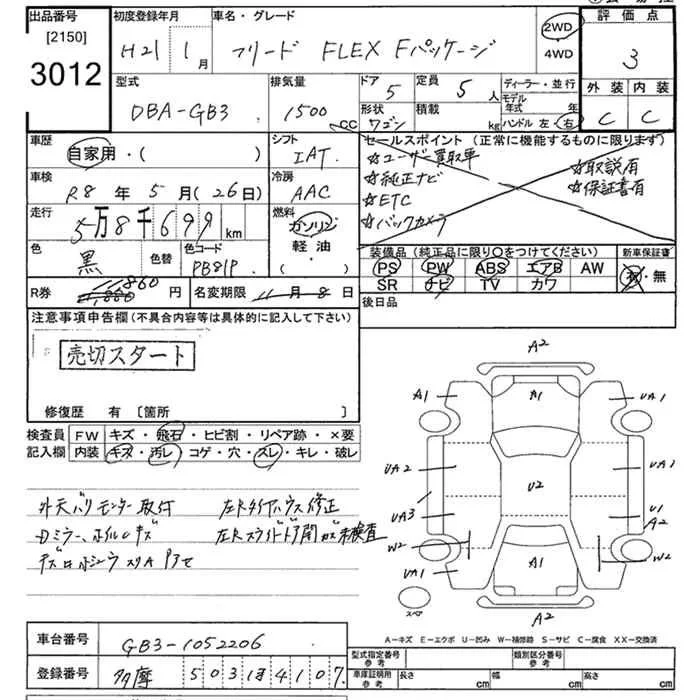 出品番号
[2150]
3012
初度登録年月
H21年 1月
車名・グレード
フリード FLEX Fパッケージ
2WD
4WD
評価点
3
外装 内装
C C
型式
DBA-GB3
排気量
1500 cc
ドア 5
定員 5人
形状 ワゴン
積載 kg
ディーラー・並行
モデル年式 年
ハンドル 左・右
車歴
自家用・( )
シフト
IAT
セールスポイント (正常に機能するものに限ります)
☆ユーザー買取車
☆純正ナビ
☆ETC
☆バックカメラ
☆取説有
☆保証書有
車検
R8年 5月(26日)
冷房
AAC
走行
5万8千699km
燃料
ガソリン
軽油・
( )
色
黒
色替
色コード
PB81P
装備品 (純正品に限り○をつけてください)
PS PW ABS エアB AW
SR ナビ TV カワ
新車保証書
有・無
R券 11,860円
名変期限 11月8日
後日品
注意事項申告欄(不具合内容等は具体的に記入して下さい)
売切スタート
修復歴 有 [箇所 ]
検査員記入欄
FW キズ・飛石・ヒビ割・リペア跡・×要
内装 キズ・汚レ・コゲ・穴・スレ・キレ・破レ
外天バリ モンター取付
左Rタイヤハウス修正
Dミラー、ホイルCキズ
左Rスライドドア開カズ未検査
A2
A1 A1 UA1
UA2 U2 UA1
UA3 U1 A2
W2 W2
UA1 A1
A2
スペア
A-キズ E-エクボ U-凹み W-補修跡 S-サビ C-腐食 XX-交換済
車台番号
GB3-1052206
登録番号
多摩 503 は 4107
型式指定番号 参考
類別区分番号 参考
車庫証明用 参考
長さ cm
幅 cm
高さ cm